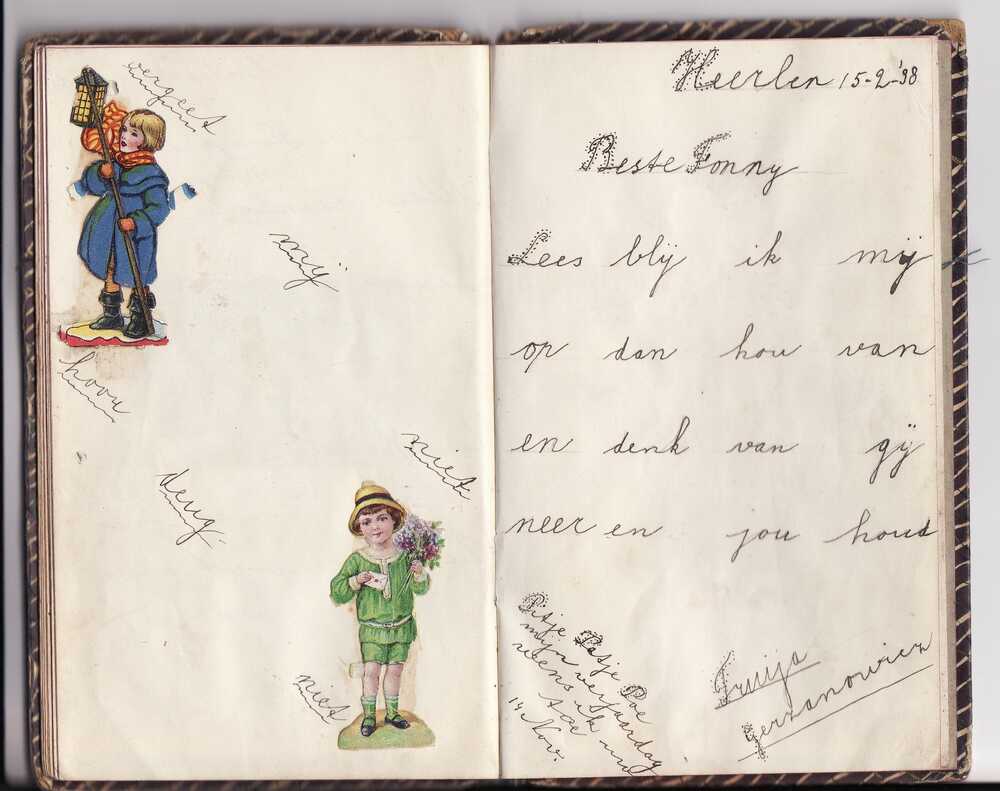 vergeet
mij
hoou
deug
niet
niet
Heerlen 15-2-'38
Beste Fonny
Lees blij ik mij
op dan hou van
en denk van gij
neer en jou houd
Pitje Patje Poe
mijn verjaardag
weens ik nu
toe
14 Nov.